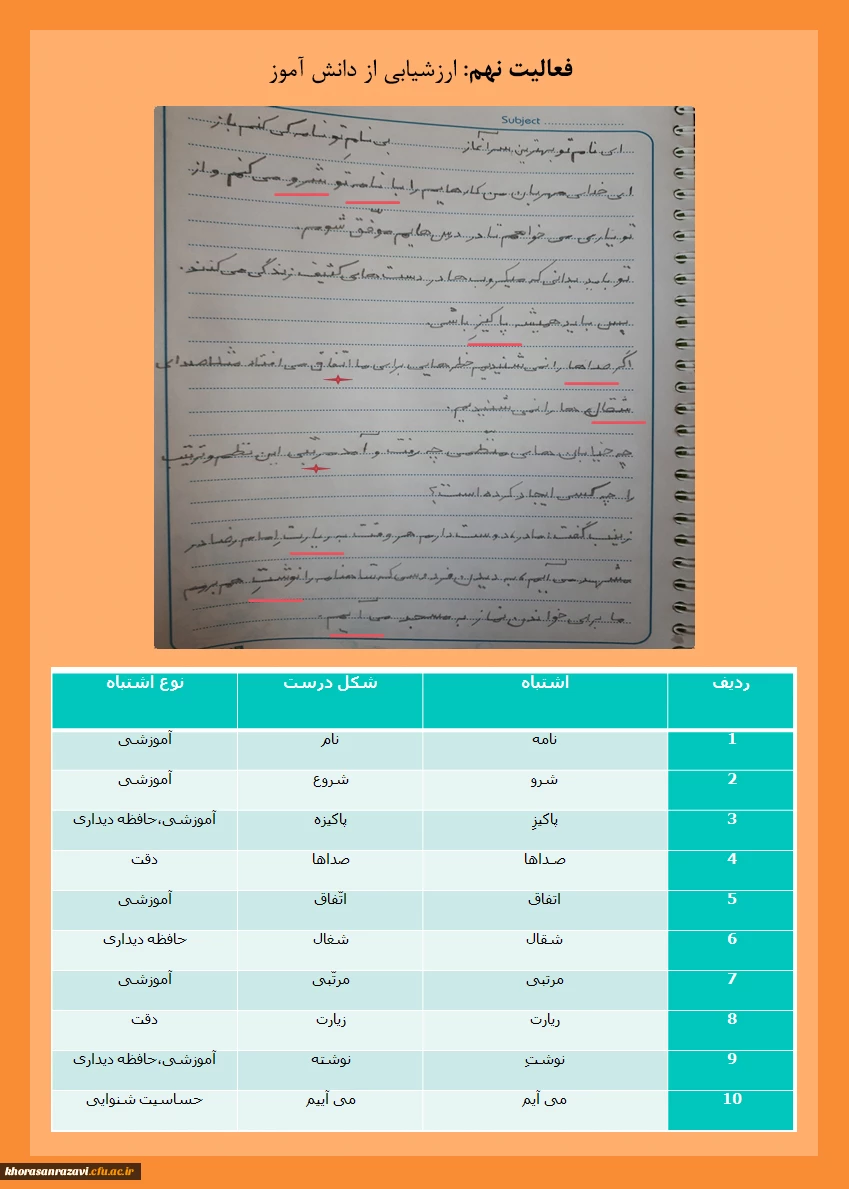 فعالیت نهم: ارزشیابی از دانش آموز
Subject
ای نام تو بهترین سرآغاز بی نامِ تو نامه کی کنم باز
ای خدای مهربان من کارهایم را با نامه تو شرو می کنم و از
تو یاری می خواهم تا در درس هایم موفّق شوم.
تو باید بدانی که میکروب ها در دست های کثیف زندگی می کنند.
پس باید همیشه پاکیزِ باشی.
اگر صداها را نمی شنیدیم خطرهایی برای ما اتّفاق می افتاد مثلا صدای
شقال ها را نمی شنیدیم.
چه خیابان های منظّمی چه رفت و آمد مرتّبی این نظم و ترتیب
را چه کسی ایجاد کرده است؟
زینب گفت: مادر، دوست دارم هر وقت به ریارت امام رضا در
مشهد می آیم، به دیدن فردوسی که شاهنامه را نوشتِ هم برویم
ما برای خواندن نماز به مسجد می آیم.
ردیف اشتباه شکل درست نوع اشتباه
1 نامه نام آموزشی
2 شرو شروع آموزشی
3 پاکیزِ پاکیزه آموزشی،حافظه دیداری
4 صداها صداها دقت
5 اتفاق اتّفاق آموزشی
6 شقال شغال حافظه دیداری
7 مرتبی مرتّبی آموزشی
8 ریارت زیارت دقت
9 نوشتِ نوشته آموزشی،حافظه دیداری
10 می آیم می آییم حساسیت شنوایی
khorasanrazavi.cfu.ac.ir